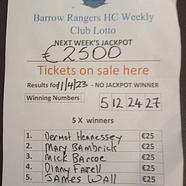 Barrow Rangers HC Weekly
Club Lotto
NEXT WEEK'S JACKPOT
€2500
Tickets on sale here
Results for 11/4/23 - NO JACKPOT WINNER
Winning Numbers 5 12 24 27
5 X winners
1. Dermot Hennessey €25
2. Mary Bambrick €25
3. Mick Barcoe €25
4. Dinny Farrell €25
5. James Wall €25